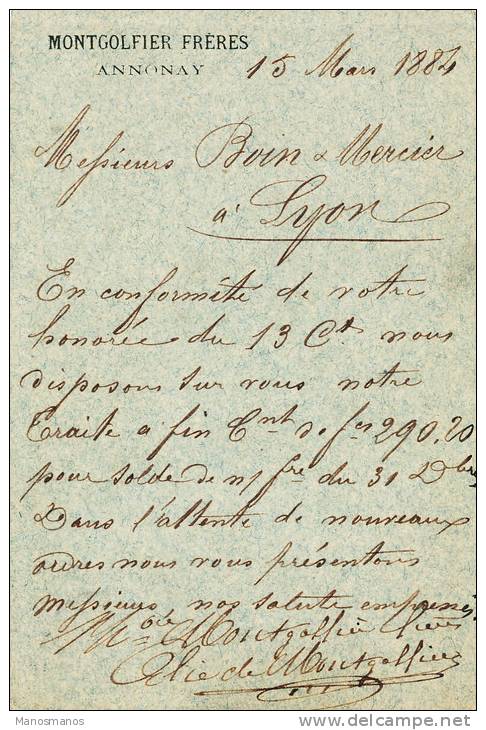 MONTGOLFIER FRÈRES
ANNONAY
15 Mars 1884
Messieurs Boin & Mercier
à Lyon
En conformité de votre
honorée du 13 Ct. nous
disposons sur vous notre
traite a fin Cnt de fcs 290.20
pour solde de n/ fre du 31 Xbre
Dans l'attente de nouveaux
ordres nous vous présentons
messieurs nos saluts empressés
Montgolfier frères
Elie de Montgolfier
Manosmanos
delcampe.net